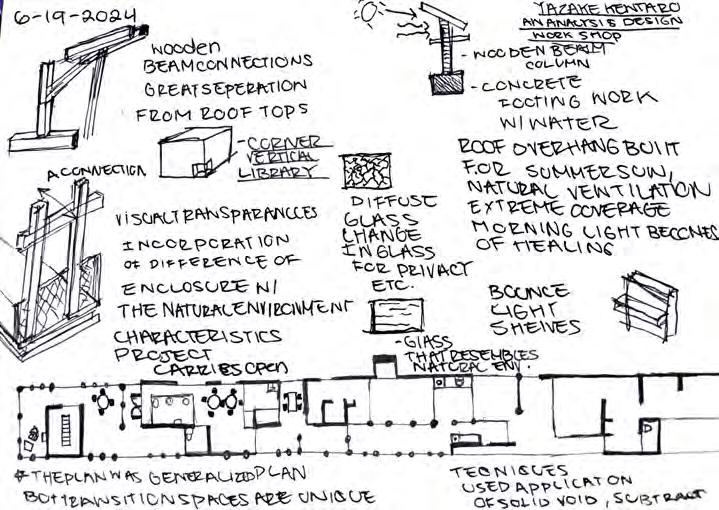 6-19-2024
WOODEN
BEAM CONNECTIONS
GREAT SEPERATION
FROM ROOF TOPS
YAZAKE KENTARO
AN ANALYSIS DESIGN
WORK SHOP
- WOODEN BEAM
COLUMN
- CONCRETE
FOOTING WORK
W/WATER
- CORNER
VERTICAL
LIBRARY
ROOF OVERHANG BUILT
FOR SUMMER SUN,
NATURAL VENTILATION
EXTREME COVERAGE
MORNING LIGHT BECOMES
OF HEALING
A CONNECTION
VISUAL TRANSPARANCCES
INCORPORATION
OF DIFFERENCE OF
ENCLOSURE N/
THE NATURAL ENVIRONMENT
CHARACTERISTICS
PROJECT
CARRIES OPEN
DIFFUSE
GLASS
CHANGE
IN GLASS
FOR PRIVACY
ETC.
BOUNCE
LIGHT
SHELVES
- GLASS
THAT RESEMBLES
NATURAL ENV.
* THE PLAN WAS GENERALIZED PLAN
BOT TRANSITION SPACES ARE UNIQUE
TEQNIQUES
USED APPLICATION
OF SOLID VOID, SUBTRACT